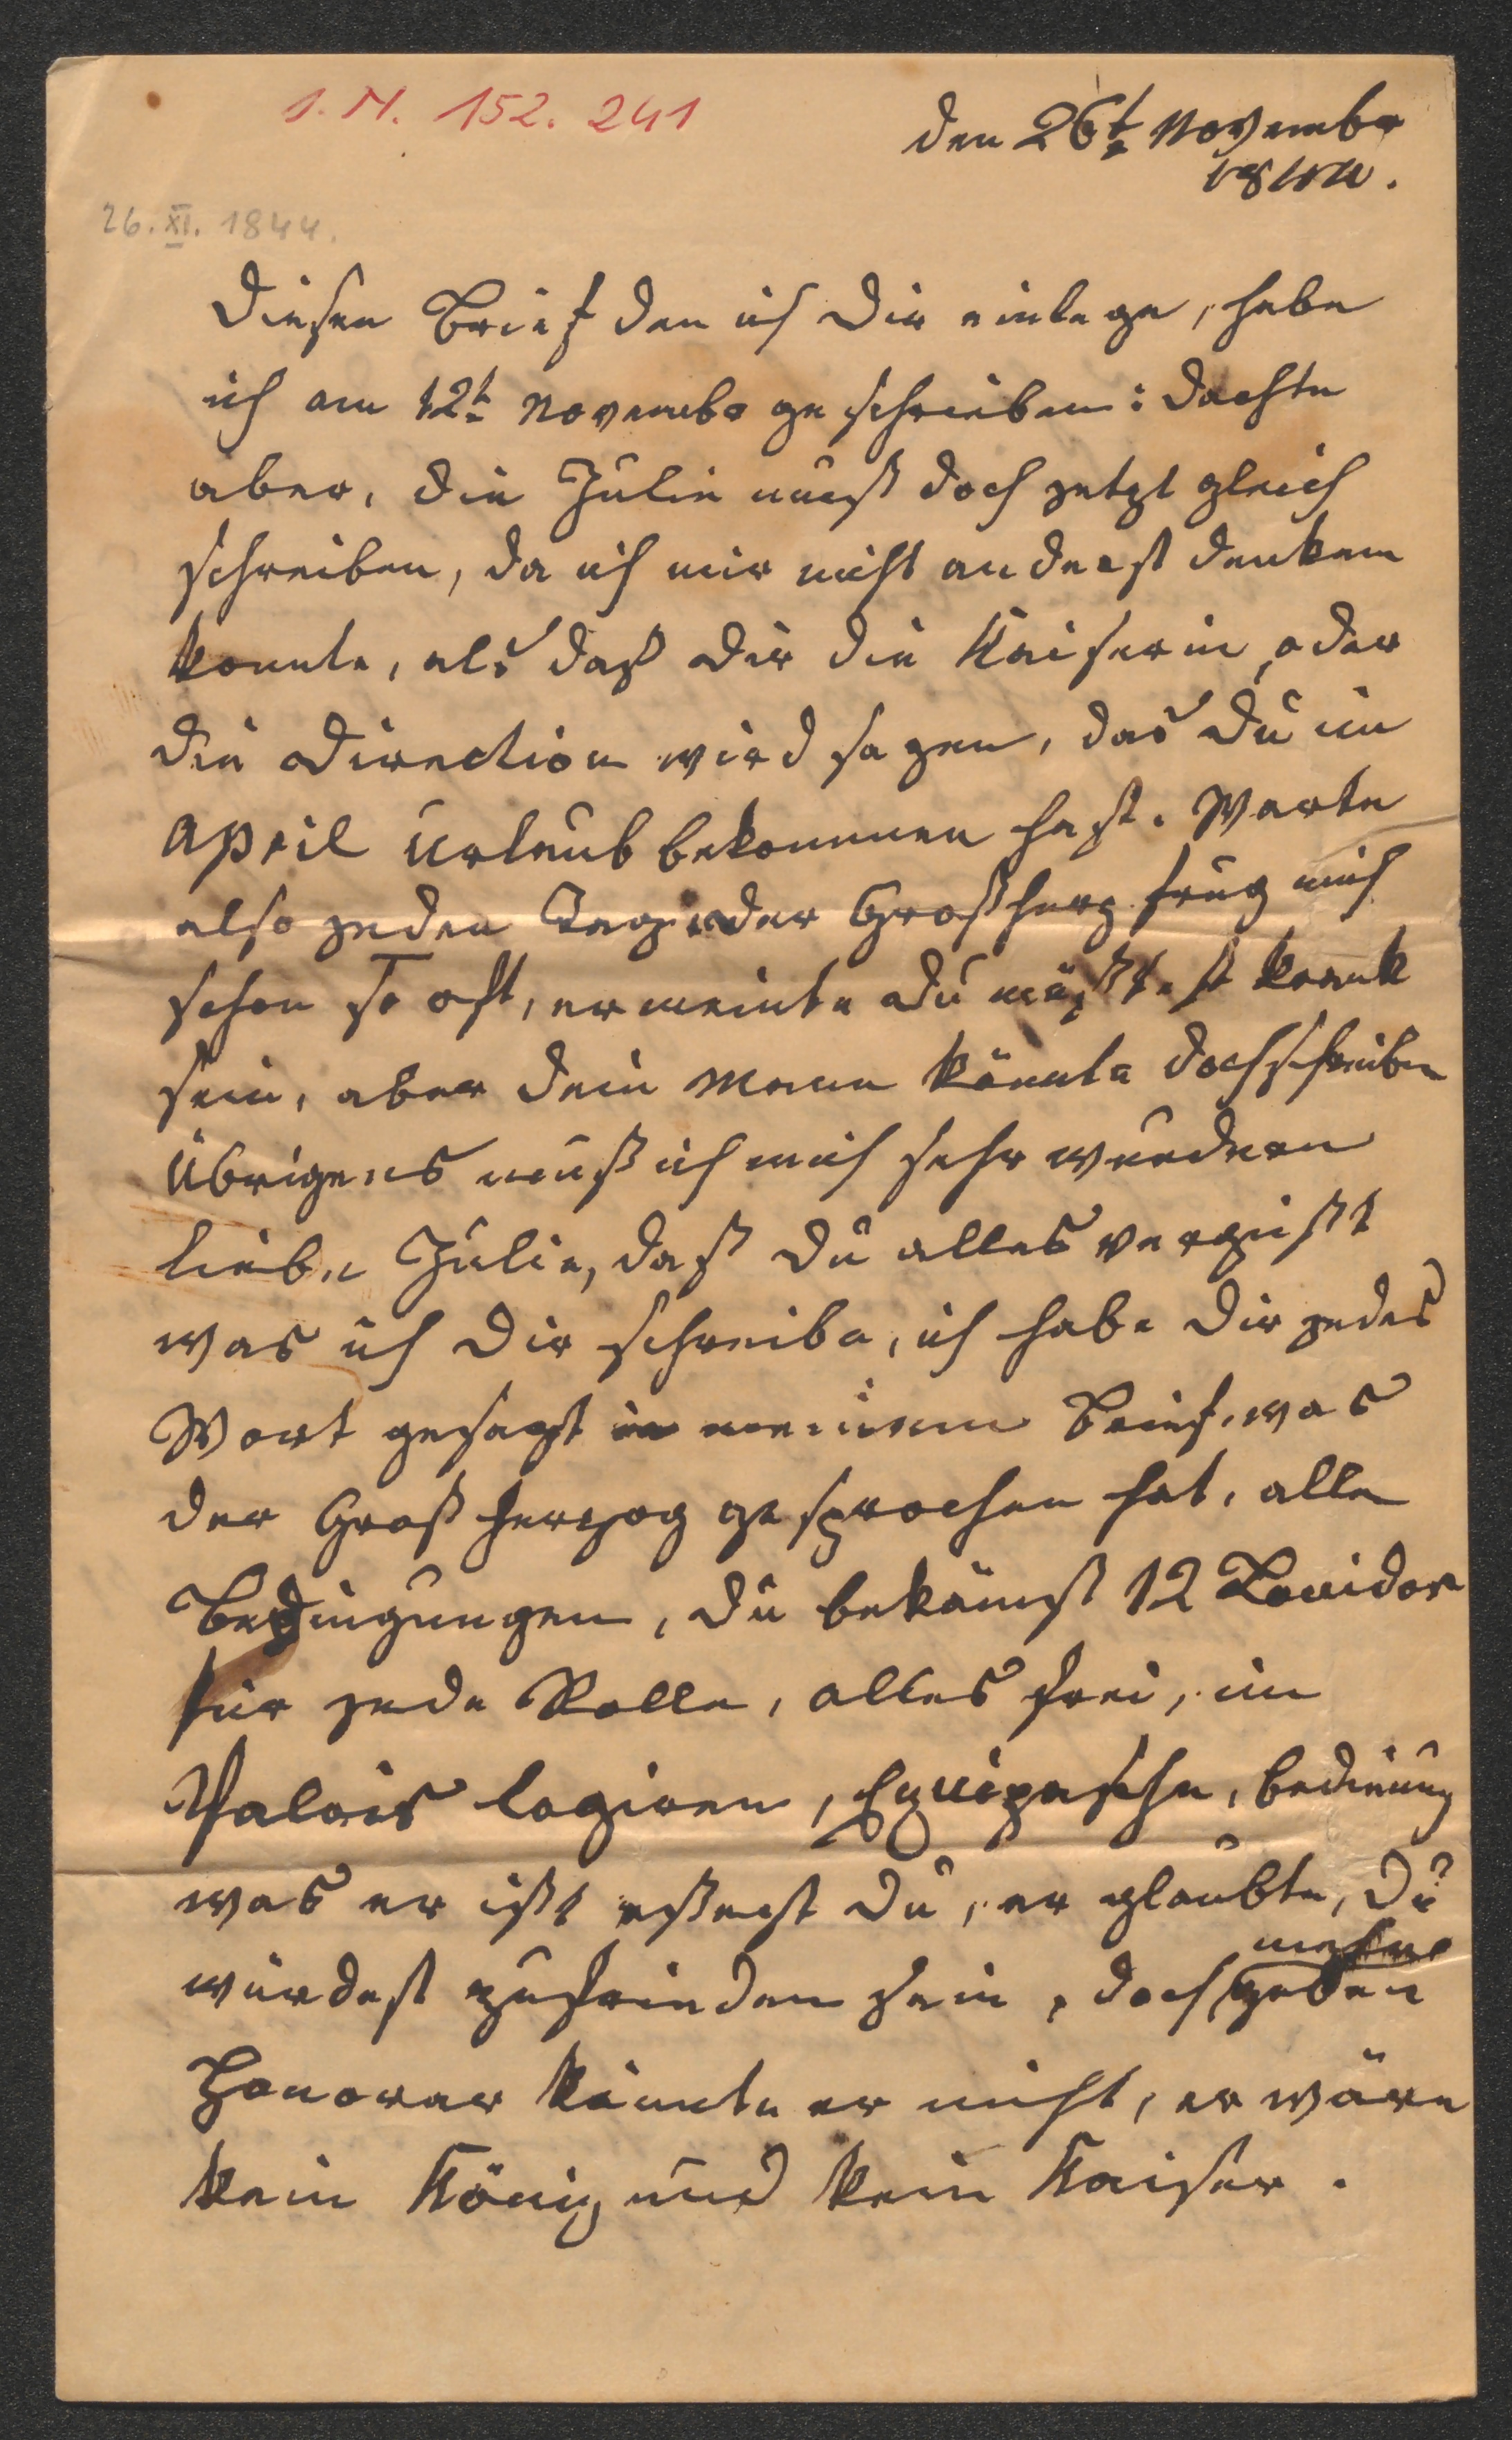 I. N. 152. 241
den 26t November
1844.
26. XI. 1844.
Diesen Brief den ich Dir einlege, habe
ich am 12t November geschrieben: dachte
aber, die Julie muß doch jetzt gleich
schreiben, da ich mir nicht anderst denken
konnte, als daß Dir die Kaiserin oder
die Direction wird sagen, das Du im
April Urlaub bekommen hast. Warte
also jeden Tag, der Großherz. frug mich
schon so oft, er meinte Du müßtest krank
sein, aber dein Mann könnte doch schreiben
Übrigens muß ich mich sehr wundern
liebe Julie, daß Du alles vergißt
was ich Dir schreibe, ich habe Dir jedes
Wort gesagt in meinem Brief, was
der Großherzog gesprochen hat, alle
Bedingungen, Du bekämst 12 Louidor
für jede Rolle, alles frei, im
Palais logiren, Equipasche, bedinung
was er ißt essest Du, er glaubte, Du
würdest zufrieden sein, doch mehr geben
Honorar könnte er nicht, er wäre
kein König und kein Kaiser.